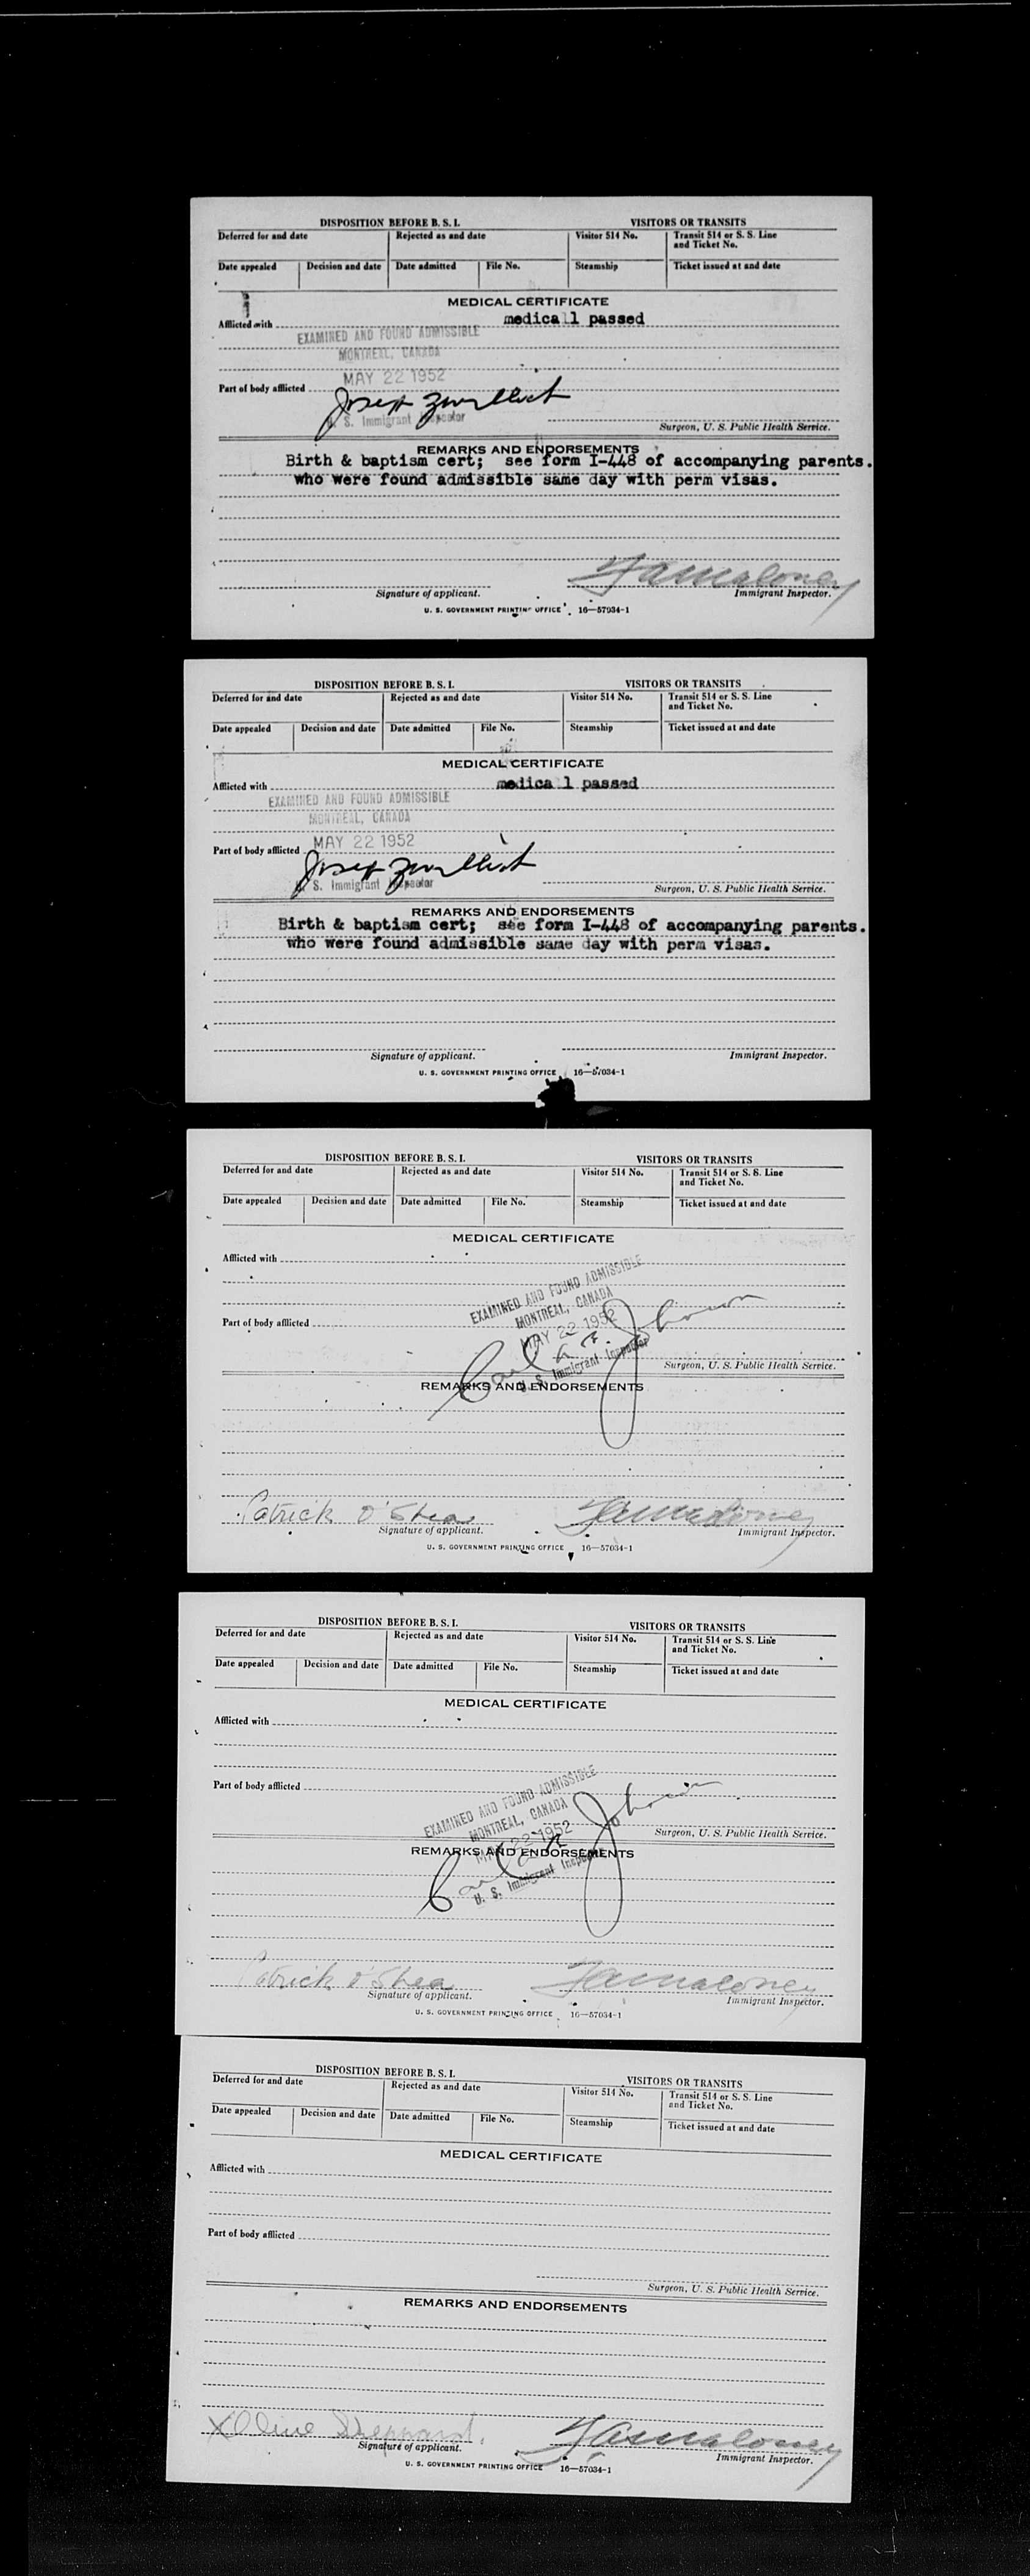 DISPOSITION BEFORE B. S. I. VISITORS OR TRANSITS
Deferred for and date Rejected as and date Visitor 514 No. Transit 514 or S. S. Line and Ticket No.
Date appealed Decision and date Date admitted File No. Steamship Ticket issued at and date
MEDICAL CERTIFICATE
Afflicted with medica l passed
EXAMINED AND FOUND ADMISSIBLE
MONTREAL, CANADA
MAY 22 1952
Part of body afflicted
Joseph
U. S. Immigrant Inspector
Surgeon, U. S. Public Health Service.
REMARKS AND ENDORSEMENTS
Birth & baptism cert; see form I-448 of accompanying parents.
who were found admissible same day with perm visas.
FAMaloney
Signature of applicant. Immigrant Inspector.
U. S. GOVERNMENT PRINTING OFFICE 16—57034-1
DISPOSITION BEFORE B. S. I. VISITORS OR TRANSITS
Deferred for and date Rejected as and date Visitor 514 No. Transit 514 or S. S. Line and Ticket No.
Date appealed Decision and date Date admitted File No. Steamship Ticket issued at and date
MEDICAL CERTIFICATE
Afflicted with medica l passed
EXAMINED AND FOUND ADMISSIBLE
MONTREAL, CANADA
MAY 22 1952
Part of body afflicted
Joseph
U. S. Immigrant Inspector
Surgeon, U. S. Public Health Service.
REMARKS AND ENDORSEMENTS
Birth & baptism cert; see form I-448 of accompanying parents.
who were found admissible same day with perm visas.
Signature of applicant. Immigrant Inspector.
U. S. GOVERNMENT PRINTING OFFICE 16—57034-1
DISPOSITION BEFORE B. S. I. VISITORS OR TRANSITS
Deferred for and date Rejected as and date Visitor 514 No. Transit 514 or S. S. Line and Ticket No.
Date appealed Decision and date Date admitted File No. Steamship Ticket issued at and date
MEDICAL CERTIFICATE
Afflicted with
EXAMINED AND FOUND ADMISSIBLE
MONTREAL, CANADA
Part of body afflicted
MAY 22 1952
Carl A. R. Johnson
U. S. Immigrant Inspector
Surgeon, U. S. Public Health Service.
REMARKS AND ENDORSEMENTS
Patrick O'Shea FAMaloney
Signature of applicant. Immigrant Inspector.
U. S. GOVERNMENT PRINTING OFFICE 16—57034-1
DISPOSITION BEFORE B. S. I. VISITORS OR TRANSITS
Deferred for and date Rejected as and date Visitor 514 No. Transit 514 or S. S. Line and Ticket No.
Date appealed Decision and date Date admitted File No. Steamship Ticket issued at and date
MEDICAL CERTIFICATE
Afflicted with
Part of body afflicted
EXAMINED AND FOUND ADMISSIBLE
MONTREAL, CANADA
MAY 22 1952
Surgeon, U. S. Public Health Service.
REMARKS AND ENDORSEMENTS
Carl A. R. Johnson
U. S. Immigrant Inspector
Patrick O'Shea FAMaloney
Signature of applicant. Immigrant Inspector.
U. S. GOVERNMENT PRINTING OFFICE 16—57034-1
DISPOSITION BEFORE B. S. I. VISITORS OR TRANSITS
Deferred for and date Rejected as and date Visitor 514 No. Transit 514 or S. S. Line and Ticket No.
Date appealed Decision and date Date admitted File No. Steamship Ticket issued at and date
MEDICAL CERTIFICATE
Afflicted with
Part of body afflicted
Surgeon, U. S. Public Health Service.
REMARKS AND ENDORSEMENTS
X Olive Sheppard. FAMaloney
Signature of applicant. Immigrant Inspector.
U. S. GOVERNMENT PRINTING OFFICE 16—57034-1